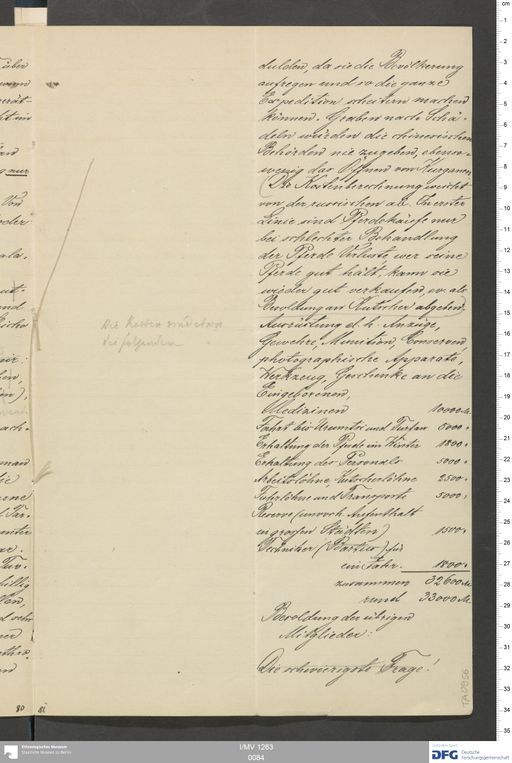 dulden, da sie die Bevölkerung
aufregen und so die ganze
Expedition scheitern machen
können. Graben nach Schä-
deln würden die chinesischen
Behörden nie zugeben, ebenso-
wenig das Öffnen von Kurganen.
(Die Kostenberechnung weicht
von der russischen ab. In erster
Linie sind Pferdekäufe nur
bei schlechter Behandlung
der Pferde Verluste, wer seine
Pferde gut hält, kann sie
wieder gut verkaufen, ev. als
Besoldung an Kutscher abgeben.
Ausrüstung d. h. Anzüge,
Gewehre, Munition, Conserven,
photographische Apparate,
Werkzeug, Geschenke an die
Eingeborenen,
Medizinen 10000 M.
Fahrt bis Urumtsi und Turfan
Erhaltung der Pferde im Winter 1800 "
Erhaltung des Personals 5000 "
Arbeitslöhne, Kutscherlöhne 2500 "
Fuhrlöhne und Transporte 5000 "
Reserve (unvorh. Aufenthalt
in grossen Städten) 1500 "
Techniker (Bartus) für
ein Jahr. 1800 "
zusammen 32600 M.
rund 33000 M.
Besoldung der übrigen
Mitglieder:
Die schwierigste Frage!
Die Kosten sind etwa
die folgenden
nur
80
81
TA 0956
Ethnologisches Museum
Staatliche Museen zu Berlin
I/MV 1263
0084
gefördert durch
DFG Deutsche
Forschungsgemeinschaft
cm
1
2
3
4
5
6
7
8
9
10
11
12
13
14
15
16
17
18
19
20
21
22
23
24
25
26
27
28
29
30
31
32
33
34
35